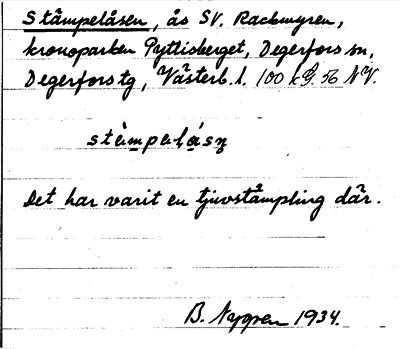 Stämpelåsen, ås SV. Rackmyren,
kronoparken Pyttisberget, Degerfors sn,
Degerfors tg, Västerb. l. 100 kG. 56 NV.
stàmpaḷásn̥
Det har varit en tjuvstämpling där.
B. Nygren 1934.